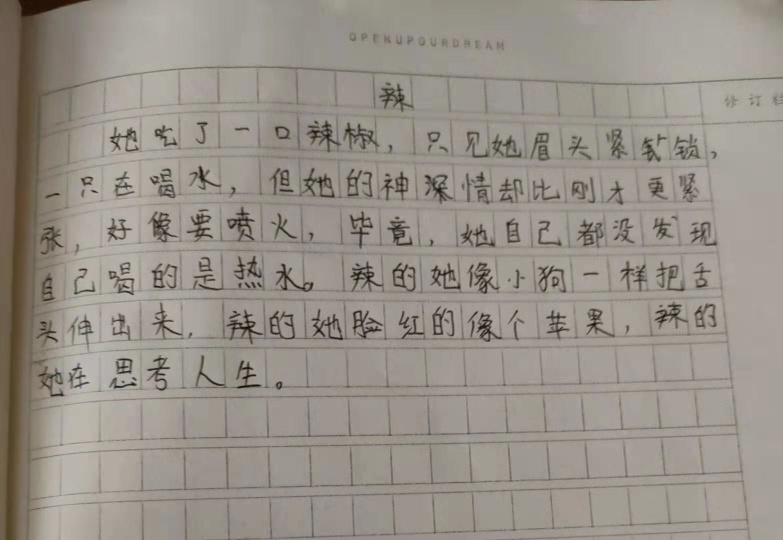 OPENUPOURDREAM
辣
修订栏
她吃了一口辣椒，只见她眉头紧锁，
一只在喝水，但她的神深情却比刚才更紧
张，好像要喷火，毕竟，她自己都没发现
自己喝的是热水。辣的她像小狗一样把舌
头伸出来，辣的她脸红的像个苹果，辣的
她在思考人生。